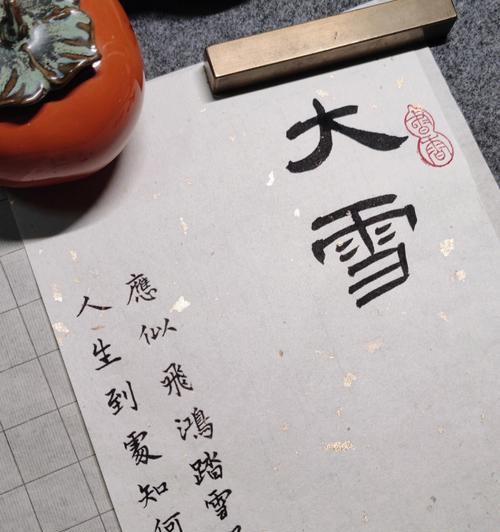 大雪
人生到處知何
應似飛鴻踏雪